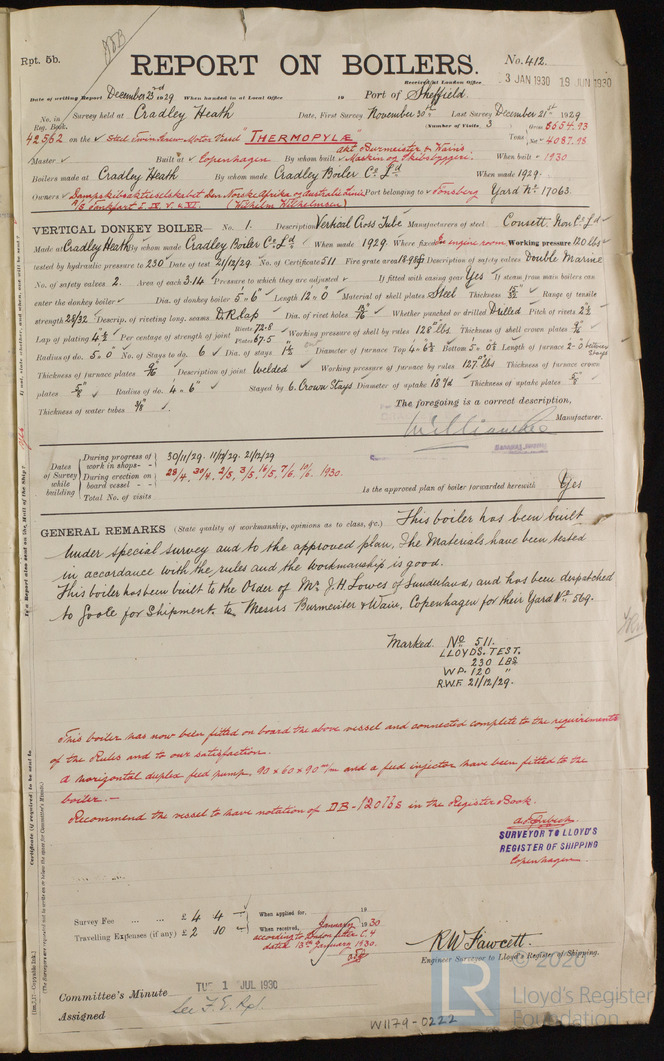 Rpt. 5b.
REPORT ON BOILERS.
No. 412.
Received at London Office 3 JAN 1930 19 JUN 1930
Date of writing Report December 23rd 1929 When handed in at Local Office 19 Port of Sheffield.
No. in Reg. Book. Survey held at Cradley Heath Date, First Survey November 30th Last Survey December 21st 1929
(Number of Visits 3
42562 on the Steel Twin Screw Motor Vessel "THERMOPYLÆ" Tons Gross 6654.93 Net 4087.98
Master Built at Copenhagen By whom built Akt Burmeister & Wain's Maskin og Skibsbyggeri. When built 1930
Boilers made at Cradley Heath By whom made Cradley Boiler Co Ld When made 1929.
Owners Port belonging to Tønsberg Yard No. 17063.
A/S Tankfart I, IV, V & VI (Wilhelm Wilhelmsen)
VERTICAL DONKEY BOILER— No. 1. Description Vertical Cross Tube Manufacturers of steel Consett Iron Co. Ld
Made at Cradley Heath By whom made Cradley Boiler Co. Ld When made 1929. Where fixed In engine room Working pressure 120 lbs
tested by hydraulic pressure to 230 Date of test 21/12/29 No. of Certificate 511 Fire grate area Description of safety valves Double Marine
No. of safety valves 2. Area of each 3.14 Pressure to which they are adjusted If fitted with easing gear Yes If steam from main boilers can
enter the donkey boiler Dia. of donkey boiler 5'6" Length 12'0" Material of shell plates Steel Thickness Range of tensile
strength 28/32 Descrip. of riveting long. seams D.R. lap Dia. of rivet holes Whether punched or drilled Drilled Pitch of rivets
Lap of plating 4½ Per centage of strength of joint Rivets 72.8 Plates 67.5 Working pressure of shell by rules 128 lbs. Thickness of shell crown plates
Radius of do. 5'0" No. of Stays to do. 6 Dia. of stays Diameter of furnace Top Bottom Length of furnace
Thickness of furnace plates 9/16" Description of joint Welded Working pressure of furnace by rules 127 lbs Thickness of furnace crown
plates 5/8" Radius of do. 4'6" Stayed by 6. Crown Stays Diameter of uptake Thickness of uptake plates
Thickness of water tubes 3/8"
The foregoing is a correct description,
Manufacturer.
Dates of Survey while building
During progress of work in shops - - 30/11/29. 11/12/29. 21/12/29
During erection on board vessel - - 28/4, 30/4, 2/5, 3/5, 16/5, 7/6, 10/6. 1930.
Total No. of visits
Is the approved plan of boiler forwarded herewith Yes
GENERAL REMARKS (State quality of workmanship, opinions as to class, &c.) This boiler has been built
under special survey and to the approved plan, The Materials have been tested
in accordance with the rules and the workmanship is good.
This boiler has been built to the Order of Mr. J. H. Lowes of Sunderland, and has been despatched
to Goole for Shipment. to Messrs Burmeister & Wain, Copenhagen for their Yard No. 569.
Marked. No 511.
LLOYDS. TEST.
230 LBS
W.P. 120 "
R.W.F. 21/12/29.
This boiler has now been fitted on board the above vessel and connected complete to the requirements
of the Rules and to our satisfaction.
A horizontal duplex feed pump, 90 x 60 x 90 m/m and a feed injector have been fitted to the
boiler. —
Recommend the vessel to have notation of DB-120 lbs in the Register Book.
SURVEYOR TO LLOYD'S
REGISTER OF SHIPPING
Copenhagen.
Survey Fee ... ... £ 4 4 When applied for, 19
Travelling Expenses (if any) £ 2 10 When received, January 1930
according to London letter C. 4
dated 13th January 1930.
R W Fawcett.
Engineer Surveyor to Lloyd's Register of Shipping.
Committee's Minute TUE 1 JUL 1930
Assigned See F.E. Rpt.
W1179-0222
© 2020
LR
Lloyd's Register
Foundation